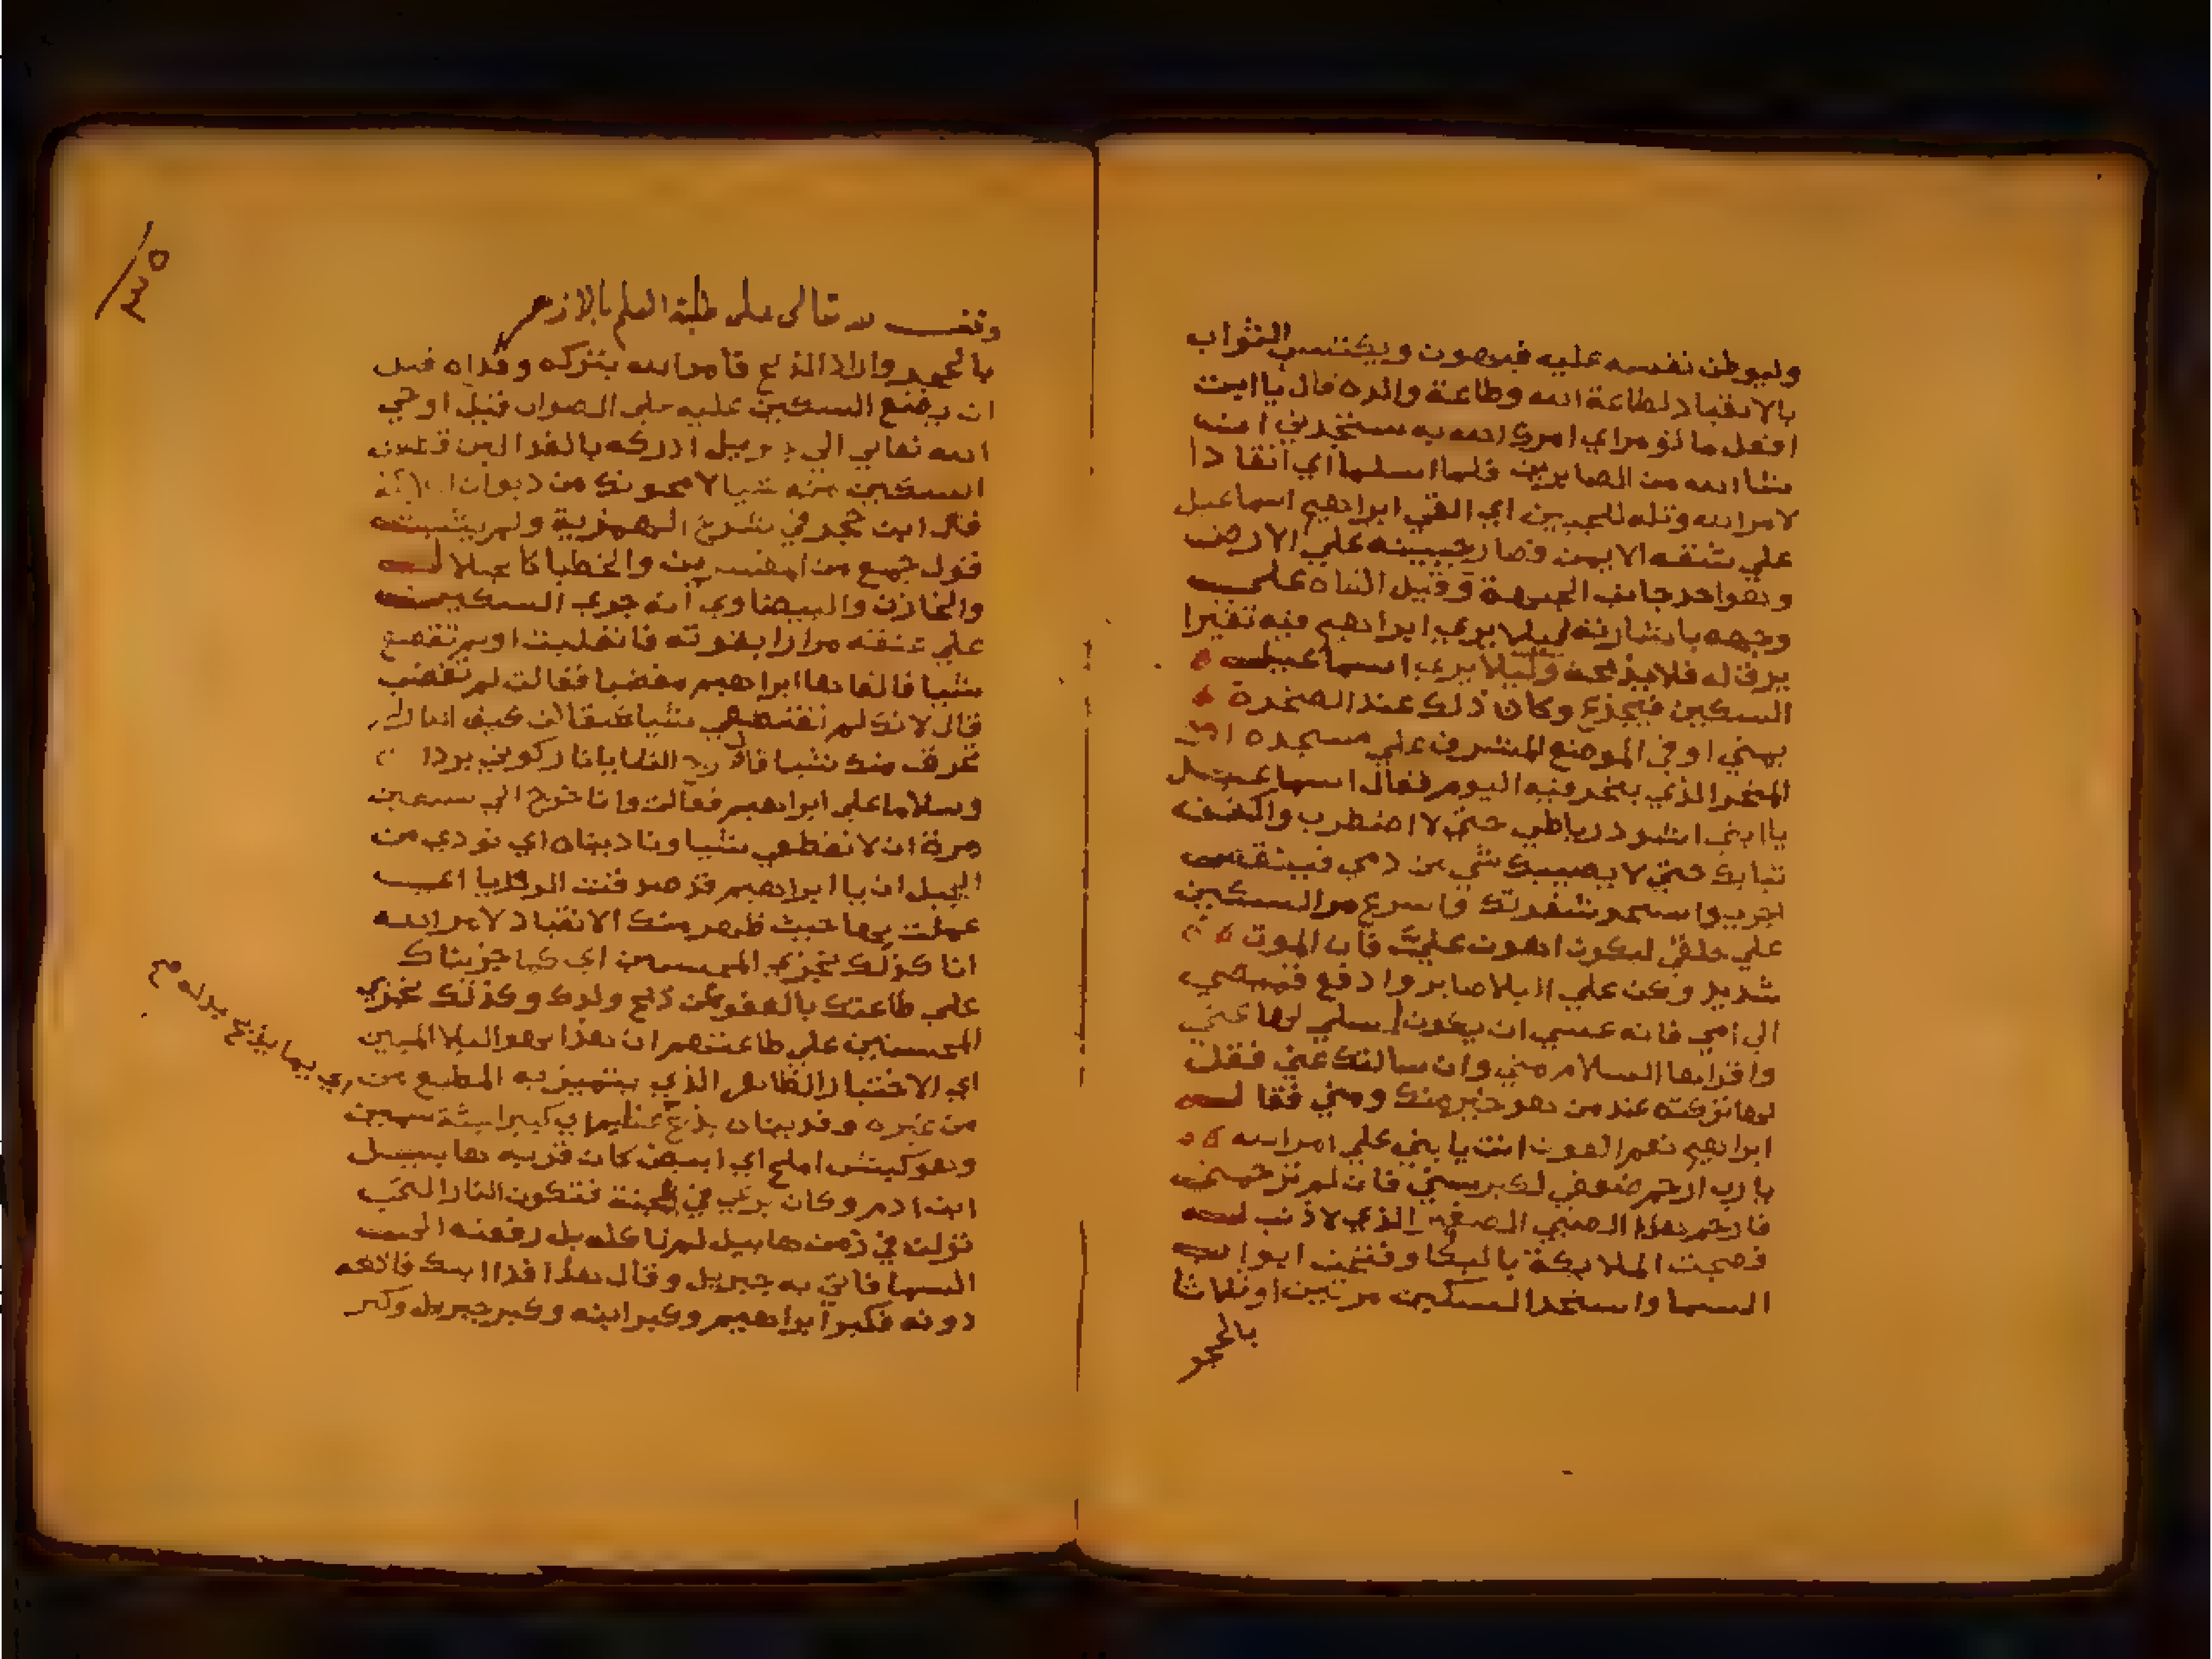 وليوطن نفسه عليه فيهون ويكتسب الثواب
بالانقياد لطاعة الله وطاعة والده قال يا ابت
افعل ما تؤمر اي امرك الله به ستجدني ان
شا الله من الصابرين فلما اسلما اي انقادا
لامر الله وتله للجبين اي القي ابراهيم اسماعيل
علي شقه الايمن فصار جبينه علي الارض
وهو احد جانب الجبهة وقيل القاه علي
وجهه باشارته ليلا يري ابراهيم فيه تغيرا
يرق له فلا يذبحه وليلا يري اسماعيل
السكين فيجزع وكان ذلك عند الصخرة
بمني او في الموضع المشرف علي مسجده او
المنحر الذي ينحر فيه اليوم فقال اسماعيل
يا ابتي اشدد رباطي حتي لا اضطرب واكفف
ثيابك حتي لا يصيبك شي من دمي فينقص
اجري واستحد شفرتك واسرع مر السكين
علي حلقي ليكون اهون علي فان الموت
شديد وكن علي البلا صابر وادفع قميصي
الي امي فانه عسي ان يكون اسلي لها عني
واقراها السلام مني وان سالتك عني فقل
لها تركته عند من هو خير منك ومني فقال له
ابراهيم نعم العون انت يا بني علي امر الله
يا رب ارحم ضعفي لكبر سني فان لم ترحمني
فارحم هذا الصبي الصغير الذي لا ذنب له
فضجت الملايكة بالبكا وفتحت ابواب
السما واستحد السكين مرتين او ثلاثا
بالحجر
٣٥
وقف لله تعالى على طلبة العلم بالازهر
بالحجر واراد الذبح فامر الله بتركه وفداه قبل
ان يضع السكين عليه علي الصواب فقيل اوحي
الله تعالي الي جبريل ادركه بالفدا لين قطعت
السكين منه شيا لامحونك من ديوان
قال ابن حجر في شرح الهمزية ولم يثبت
قول جمع من المفسرين والخطبا كالجلال
والخازن والبيضاوي انه جري السكين
علي عنقه مرارا بقوته فانقلبت او لم تقطع
شيا فالقاها ابراهيم مغضبا فقالت لم تغضب
قال لانك لم تقطعي شيا فقالت كيف
تحرق منك شيا قال النار يا نار كوني بردا
وسلاما علي ابراهيم فقالت وانا خرج الي سبعين
مرة ان لا تقطعي شيا وناديناه اي نودي من
الجبل ان يا ابراهيم قد صدقت الرويا اي
عملت بها حيث ظهر منك الانقياد لامر الله
انا كذلك نجزي المحسنين اي كما جزيناك
علي طاعتك بالعفو عن ذبح ولدك وكذلك نجزي
المحسنين علي طاعتهم ان هذا لهو البلا المبين
اي الاختبار الظاهر الذي يتميز به المطيع من
من غيره وفديناه بذبح عظيم اي كبير الجثة سمين
وهو كبش املح اي ابيض كان قربه هابيل
ابن ادم وكان يرعي في الجنة فتكون النار التي
نزلت في زمن هابيل لم تاكله بل رفعته الي
السما فاتي به جبريل وقال هذا فدا ابنك فاذبحه
دونه فكبر ابراهيم وكبر ابنه وكبر جبريل وكبر